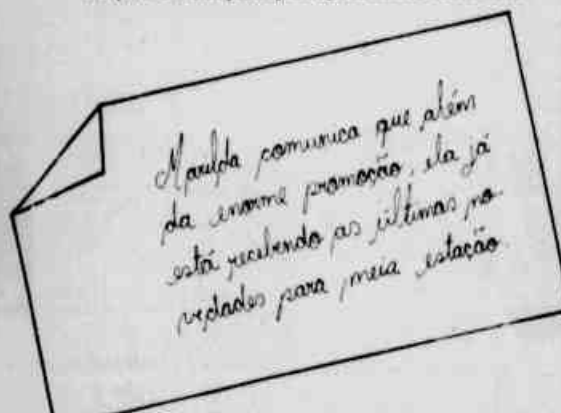 Marilda comunica que além
da enorme promoção, ela já
está recebendo as últimas no-
vidades para meia estação.